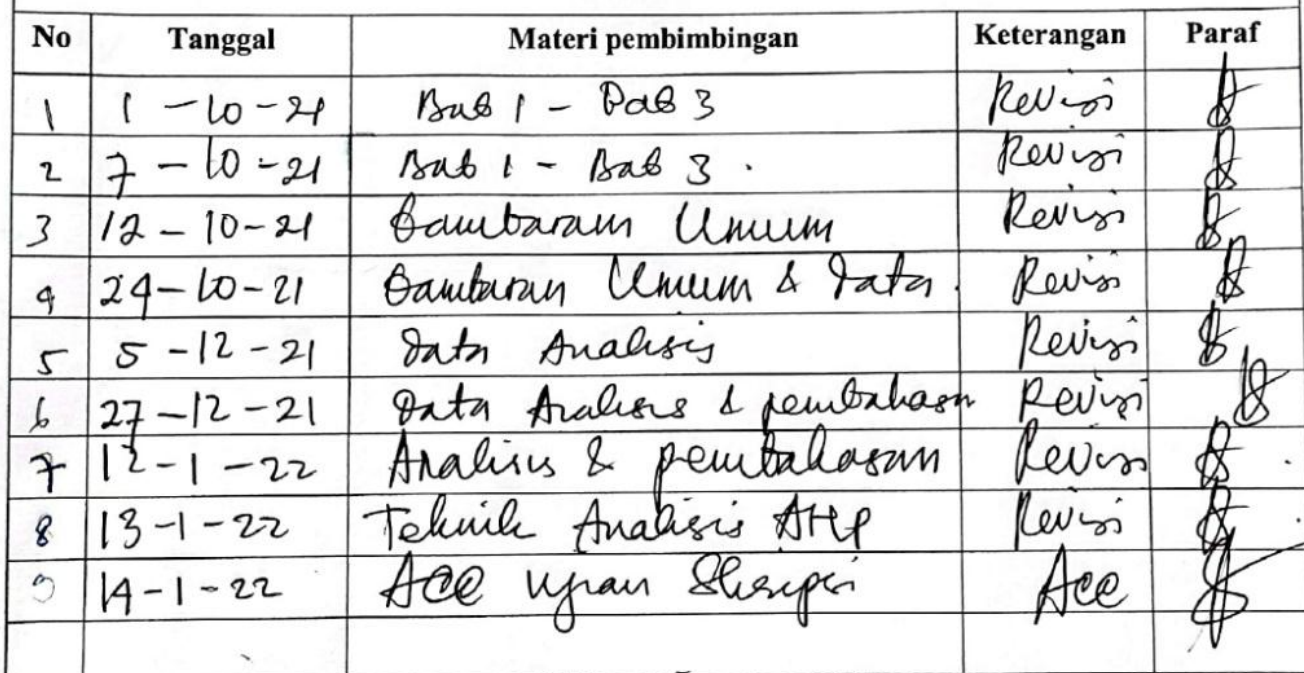 No Tanggal Materi pembimbingan Keterangan Paraf
1 1-10-21 Bab 1 - Bab 3 Revisi
2 7-10-21 Bab 1 - Bab 3. Revisi
3 12-10-21 Gambaran Umum Revisi
4 24-10-21 Gambaran Umum & Data. Revisi
5 5-12-21 Data Analisis Revisi
6 27-12-21 Data Analisis & pembahasan Revisi
7 12-1-22 Analisis & pembahasan Revisi
8 13-1-22 Teknik Analisis AHP Revisi
9 14-1-22 ACC Ujian Skripsi Acc